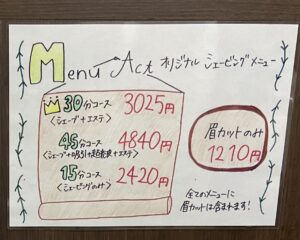 Menu Act オリジナル シェービングメニュー
30分コース 3025円
<シェーブ+エステ>
45分コース 4840円
<シェーブ+吸引+超音波+エステ>
15分コース 2420円
<シェービングのみ>
眉カットのみ
1210円
全てのメニューに
眉カットは含まれます!